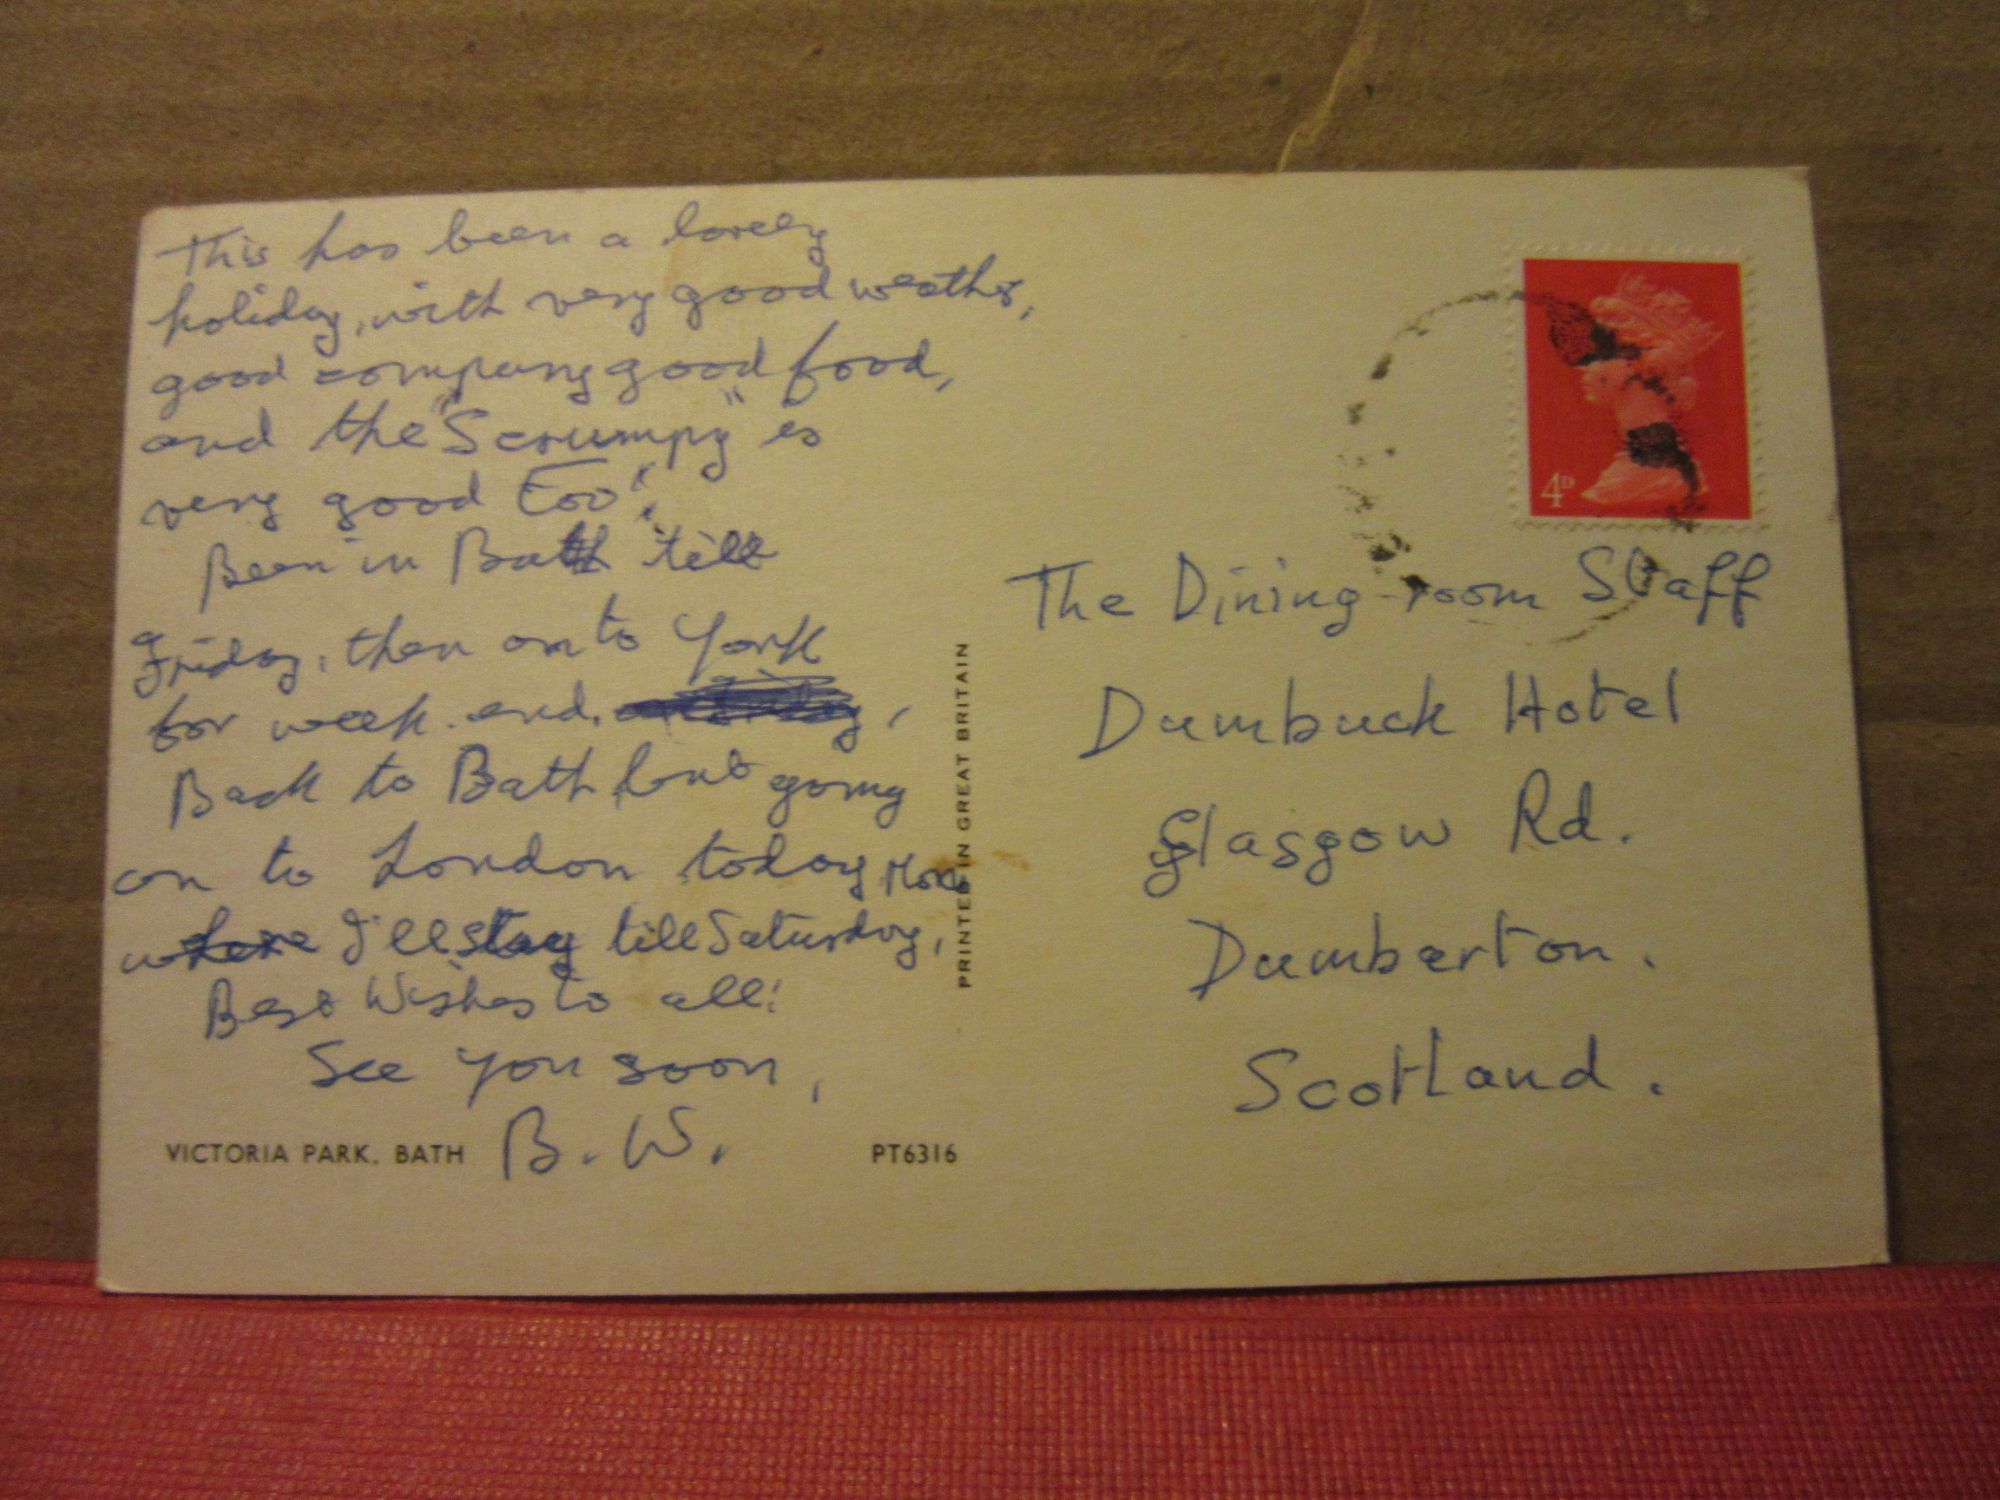 This has been a lovely
holiday, with very good weather,
good company good food,
and the "Scrumpy" is
very good too!
Been in Bath till
Friday, then on to York
for week-end,
Back to Bath but going
on to London today Mon
where I'll stay till Saturday,
Best Wishes to all!
See you soon,
B. W.
VICTORIA PARK. BATH
PT6316
PRINTED IN GREAT BRITAIN
4D
The Dining-room Staff
Dumbuck Hotel
Glasgow Rd.
Dumbarton.
Scotland.